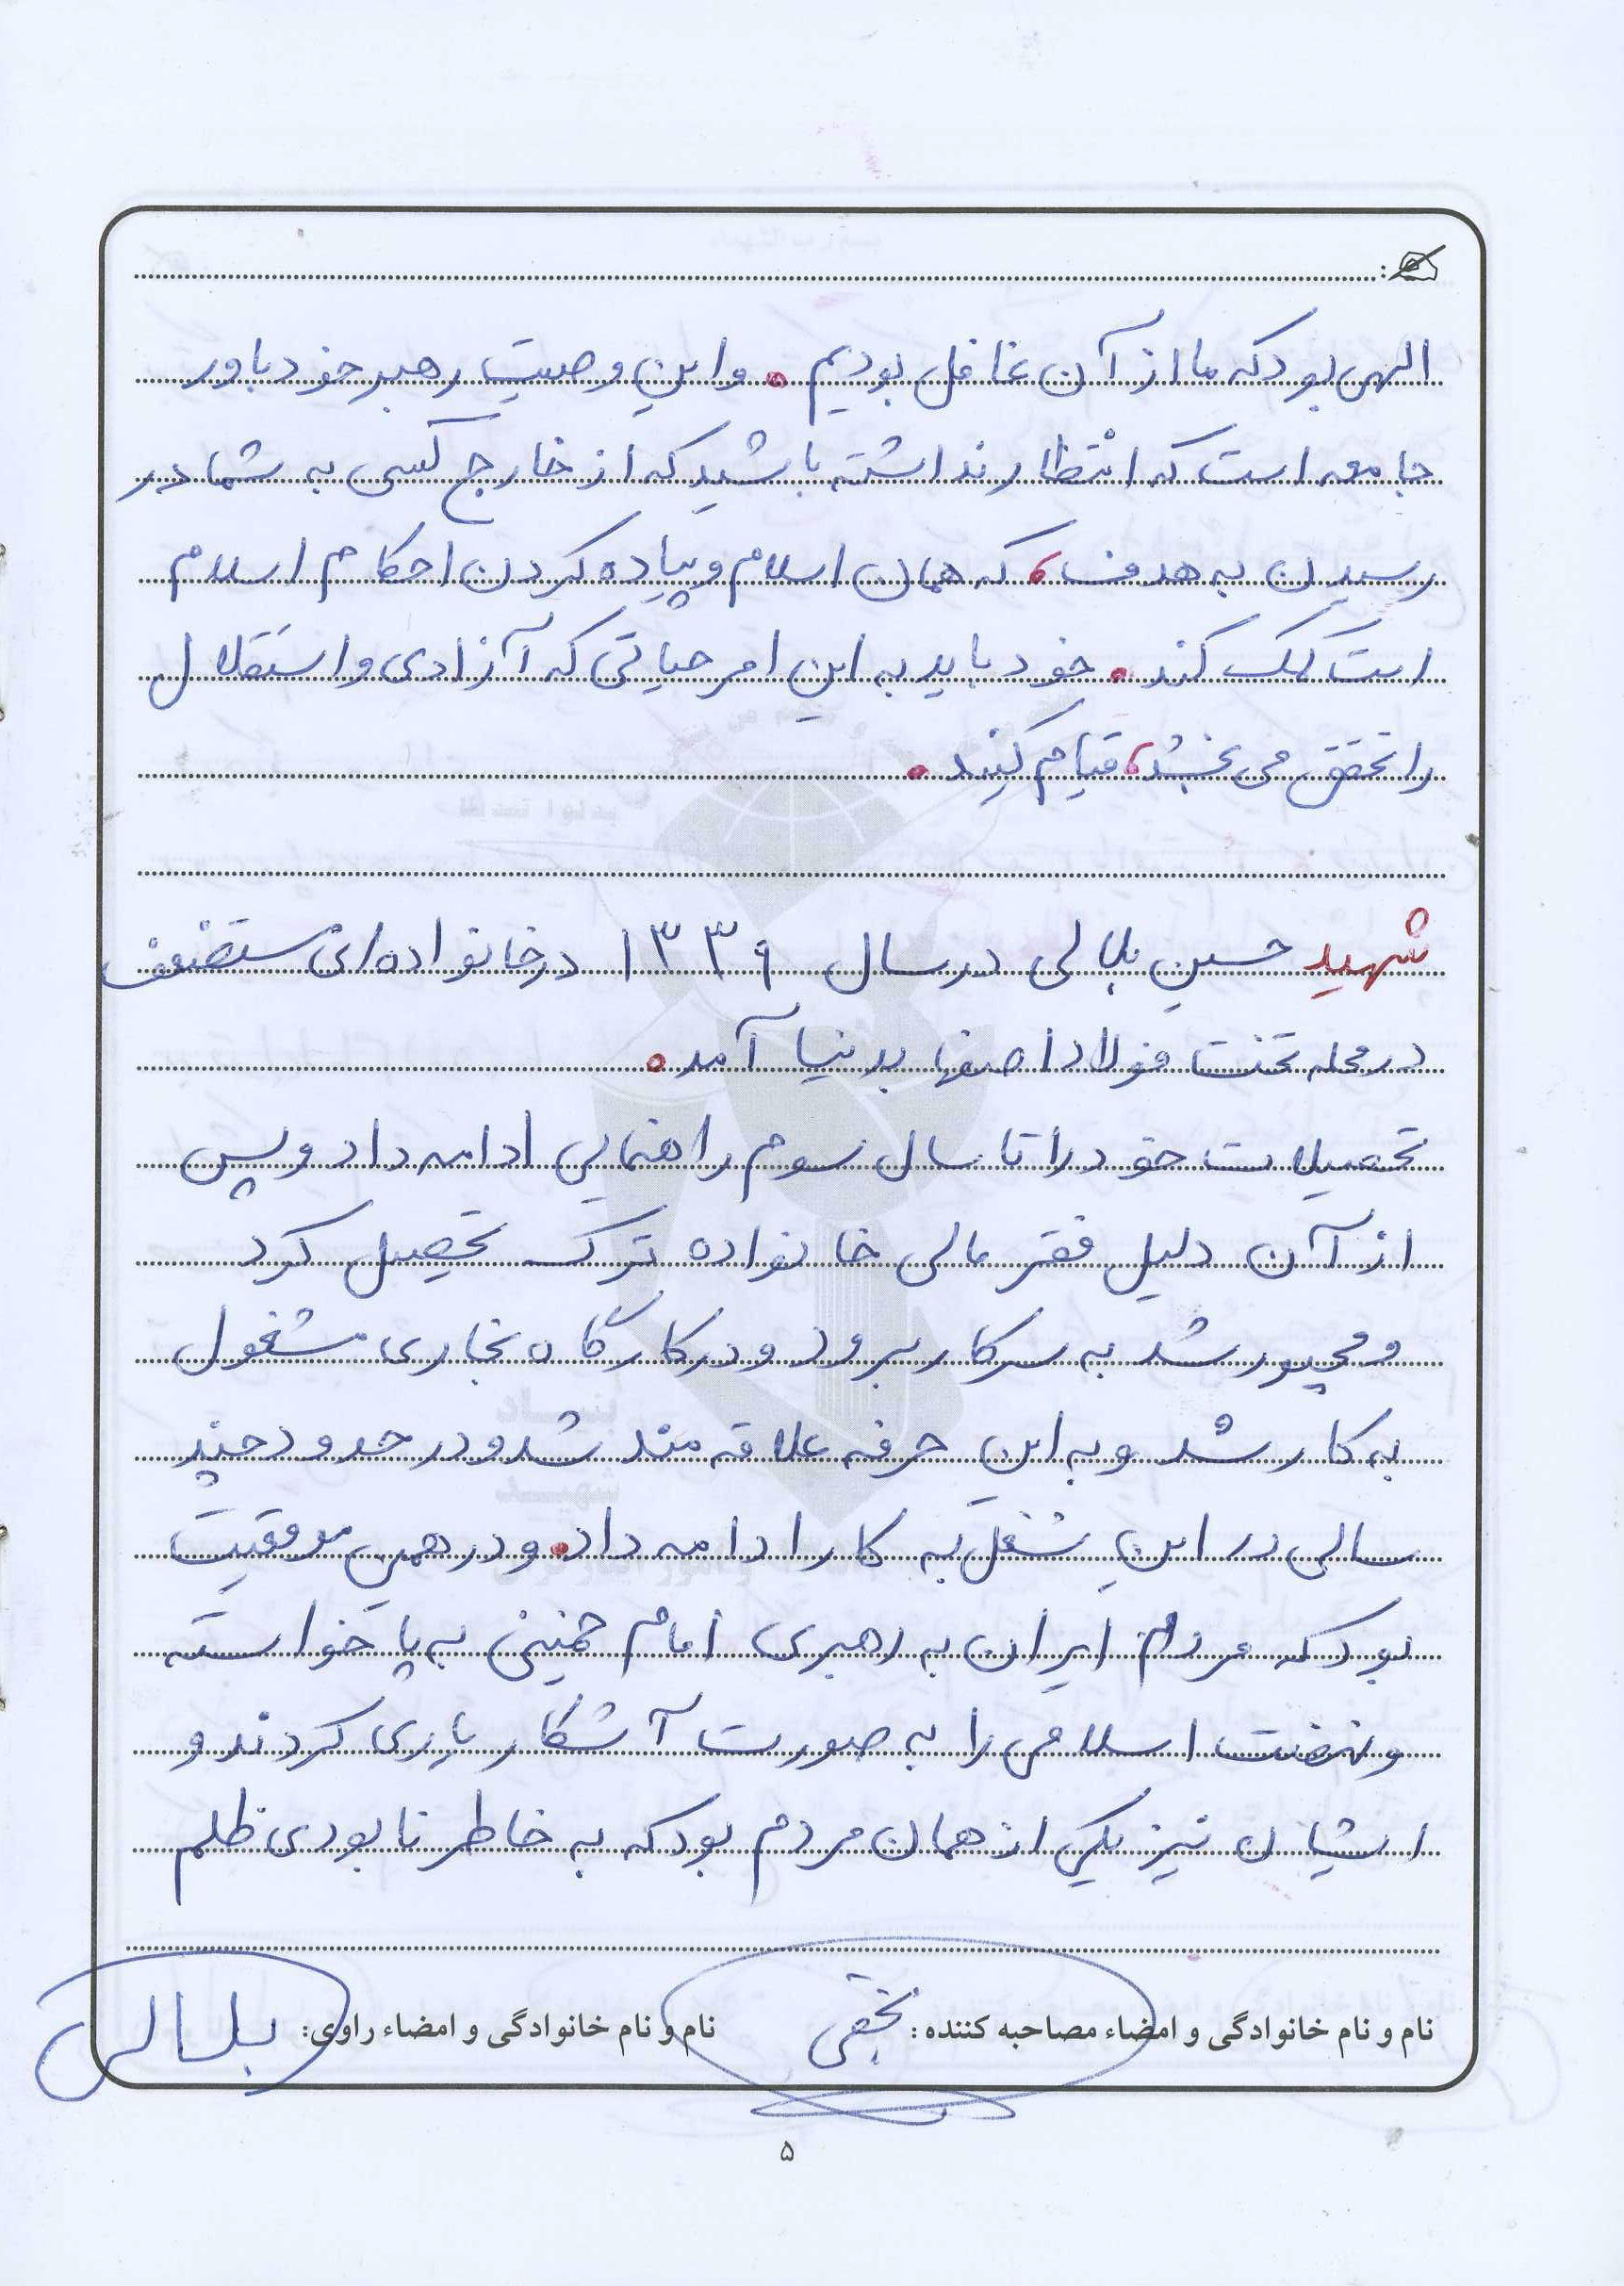 الهی بود که ما از آن غافل بودیم . و این وصیت رهبر خود باور
جامعه است که انتظار نداشته باشید که از خارج کسی به شما در
رسیدن به هدف ، که همان اسلام و پیاده کردن احکام اسلام
است کمک کند . خود باید به این امر حیاتی که آزادی و استقلال
را تحقق می بخشد ، قیام کنید .
شهید حسین بلالی در سال ۱۳۳۹ در خانواده ای مستضعف
در محله تخت فولاد اصفها بدنیا آمد .
تحصیلات خود را تا سال سوم راهنمایی ادامه داد و پس
از آن دلیل فقر مالی خانواده ترک تحصیل کرد
و مجبور شد به سر کار برود و در کارگاه نجاری مشغول
به کار شد و به این حرفه علاقه مند شد و در حدود چند
سالی در این شغل به کار ادامه داد . و در همین موقعیت
بود که مردم ایران به رهبری امام خمینی به پا خواسته
و نهضت اسلامی را به صورت آشکار یاری کردند و
ایشان نیز یکی از همان مردم بود که به خاطر نابودی ظلم
نام و نام خانوادگی و امضاء مصاحبه کننده : نجفی نام و نام خانوادگی و امضاء راوی: بلالی
۵